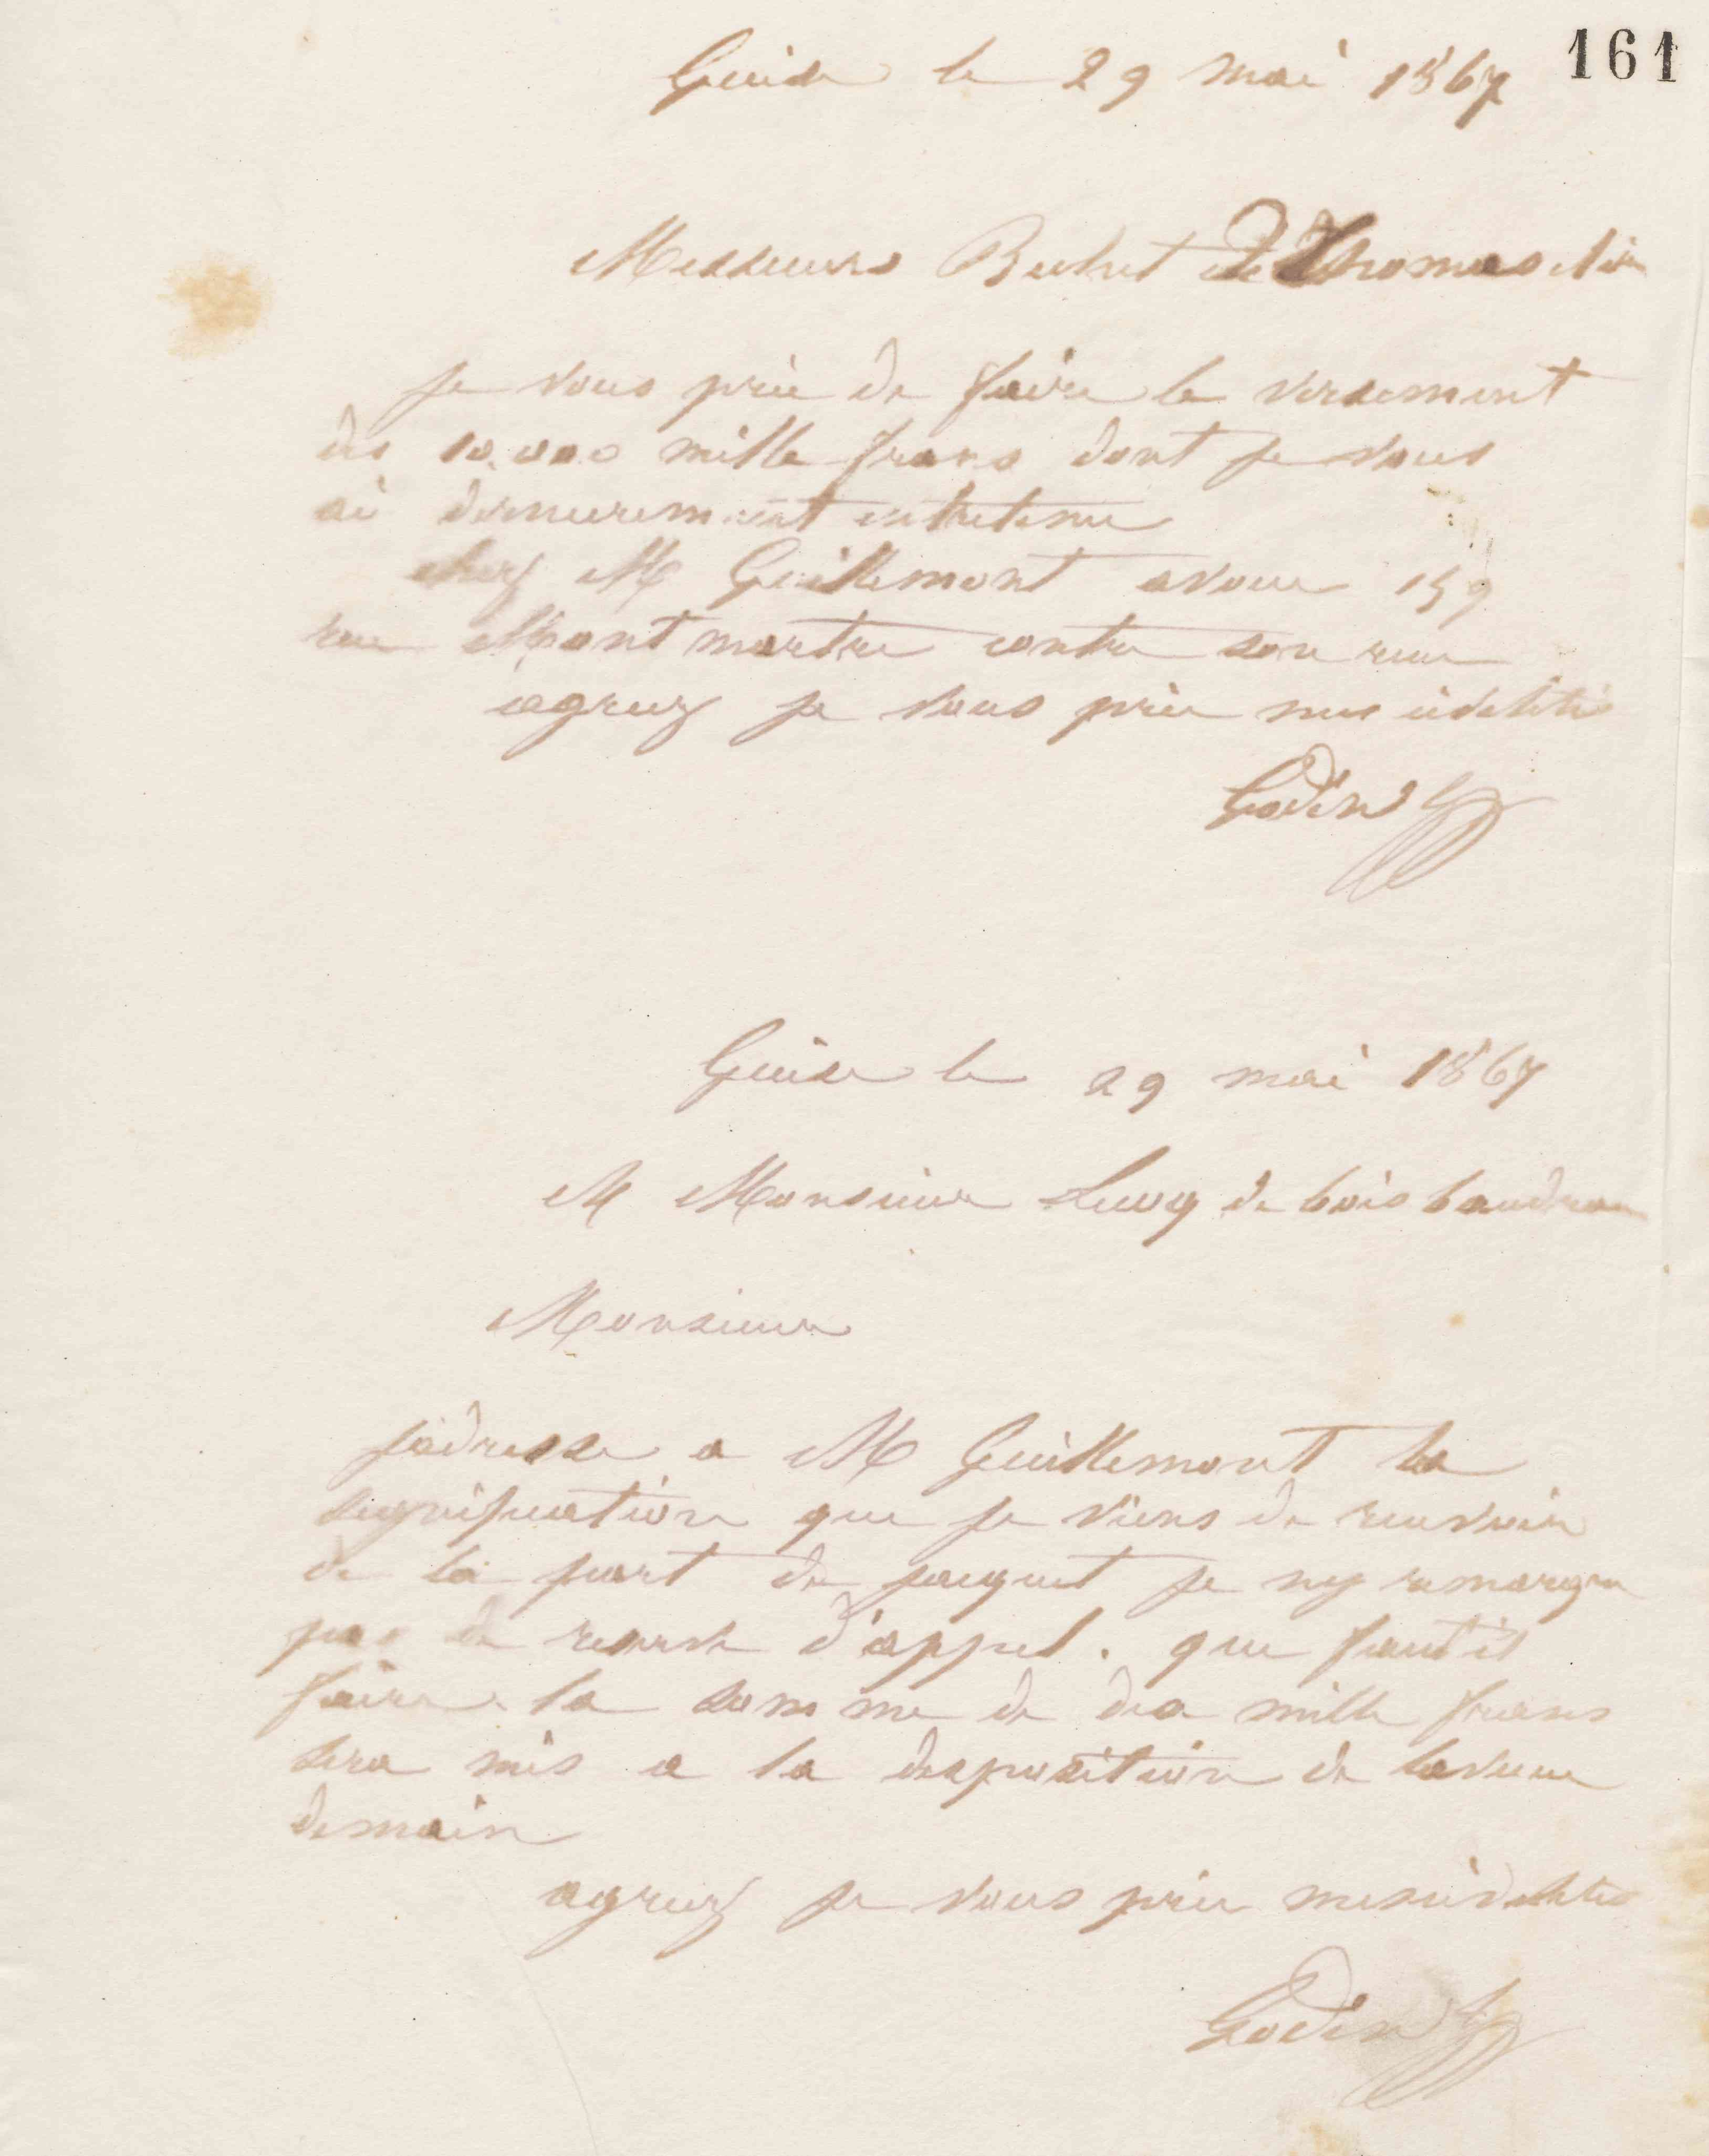 161
Guise le 29 mai 1867
Messieurs Bechet de Thomas et Cie
je vous prie de faire le versement
des 10.000 mille frans dont je vous
ai dernierement entretenu
chez M Guillemont avoue 159
rue Montmartre contre son recu
agreez je vous prie mes civilités
Godin
Guise le 29 mai 1867
M Monsieur Lecoq de bois baudran
Monsieur
jadresse a M Guillemont la
signification que je viens de recevoir
de la part de jacquet je ny remarque
pas de d'appel. que faut il
faire la somme de dix mille frans
sera mis a la disposition de lavoue
demain
agreez je vous prie mes civilités
Godin